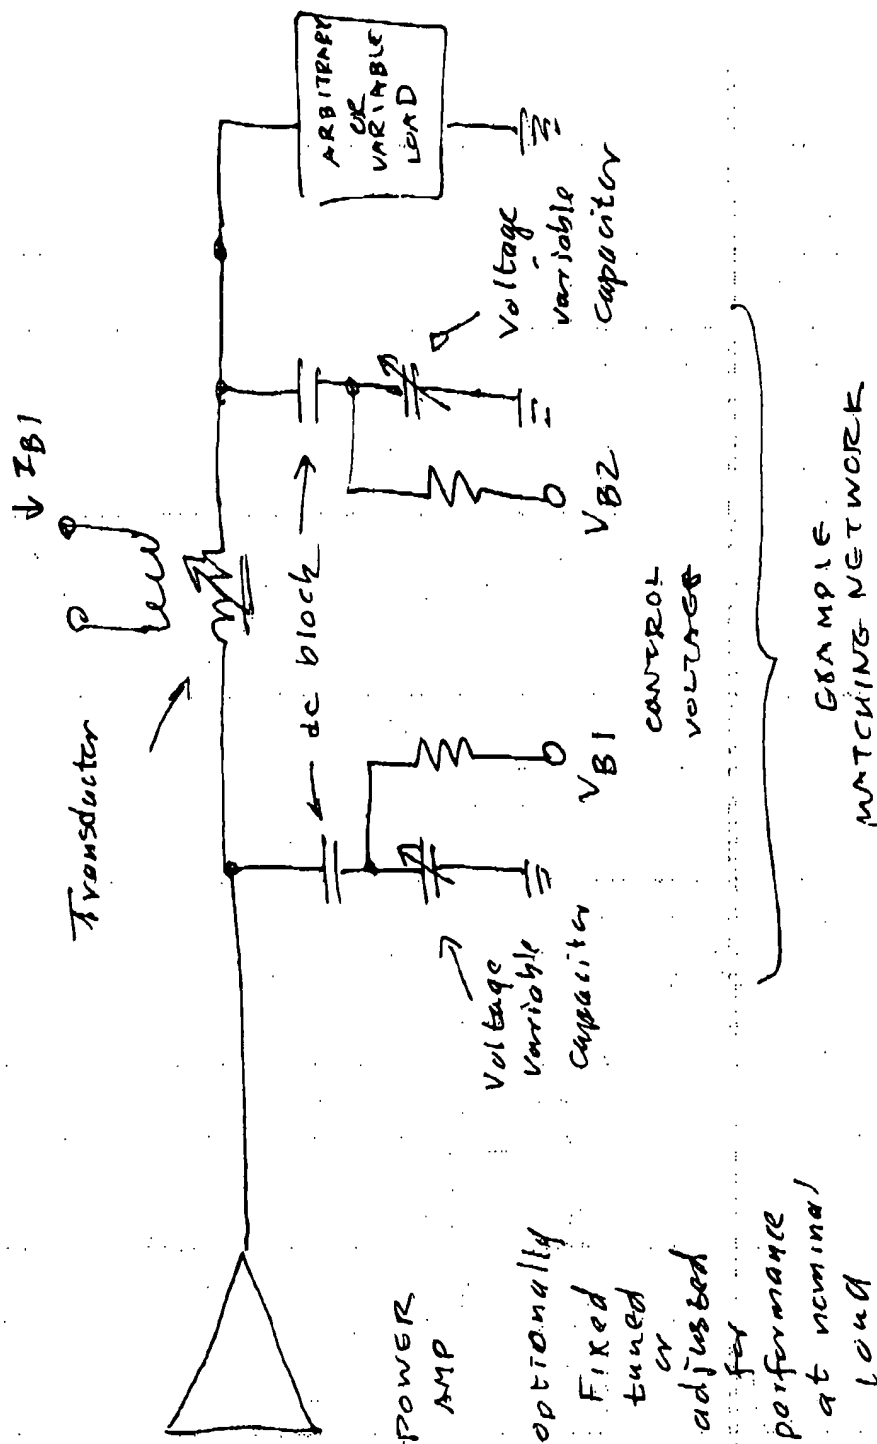 POWER
AMP
optionally
Fixed
tuned
or
adjusted
for
performance
at nominal
load
Transductor
↓ IB1
← dc block →
Voltage
variable
capacitor
VB1
CONTROL
VOLTAGE
VB2
Voltage
variable
capacitor
ARBITRARY
OR
VARIABLE
LOAD
EXAMPLE
MATCHING NETWORK